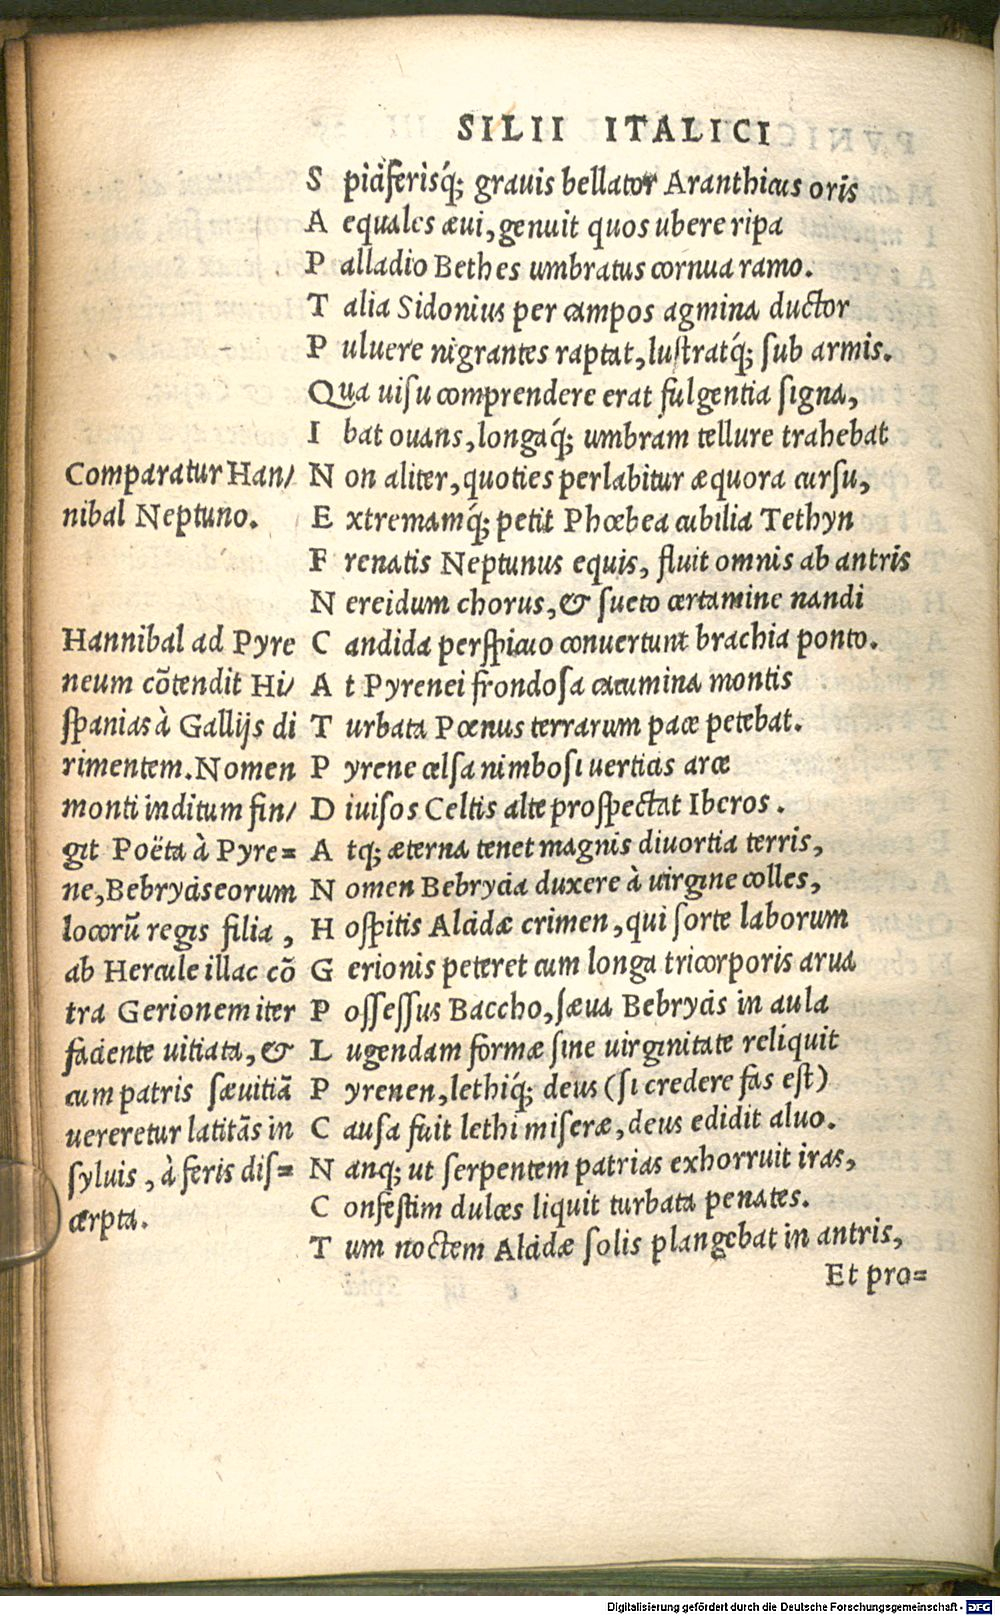 SILII ITALICI
S piciferisq́; grauis bellator Aranthicus oris
A equales æui, genuit quos ubere ripa
P alladio Bethes umbratus cornua ramo.
T alia Sidonius per campos agmina ductor
P uluere nigrantes raptat, lustratq́; sub armis.
Qua uisu comprendere erat fulgentia signa,
I bat ouans, longaq́; umbram tellure trahebat
N on aliter, quoties perlabitur æquora cursu,
E xtremamq́; petit Phœbea cubilia Tethyn
F renatis Neptunus equis, fluit omnis ab antris
N ereidum chorus, & sueto certamine nandi
C andida perspicuo conuertunt brachia ponto.
A t Pyrenei frondosa cacumina montis
T urbata Pœnus terrarum pace petebat.
P yrene celsa nimbosi uerticis arce
D iuisos Celtis alte prospectat Iberos.
A tq; æterna tenet magnis diuortia terris,
N omen Bebrycia duxere à uirgine colles,
H ospitis Alcidæ crimen, qui sorte laborum
G erionis peteret cum longa tricorporis arua
P ossessus Baccho, sæua Bebrycis in aula
L ugendam formæ sine uirginitate reliquit
P yrenen, lethiq́; deus (si credere fas est)
C ausa fuit lethi miseræ, deus edidit aluo.
N anq; ut serpentem patrias exhorruit iras,
C onfestim dulces liquit turbata penates.
T um noctem Alcidæ solis plangebat in antris,
Et pro=
Comparatur Han/
nibal Neptuno.
Hannibal ad Pyre
neum cõtendit Hi/
spanias à Gallijs di
rimentem. Nomen
monti inditum fin/
git Poëta à Pyre=
ne, Bebrycis eorum
locorũ regis filia,
ab Hercule illac cõ
tra Gerionem iter
faciente uitiata, &
cum patris sæuitiã
uereretur latitãs in
syluis, à feris dis=
cerpta.
Digitalisierung gefördert durch die Deutsche Forschungsgemeinschaft - DFG